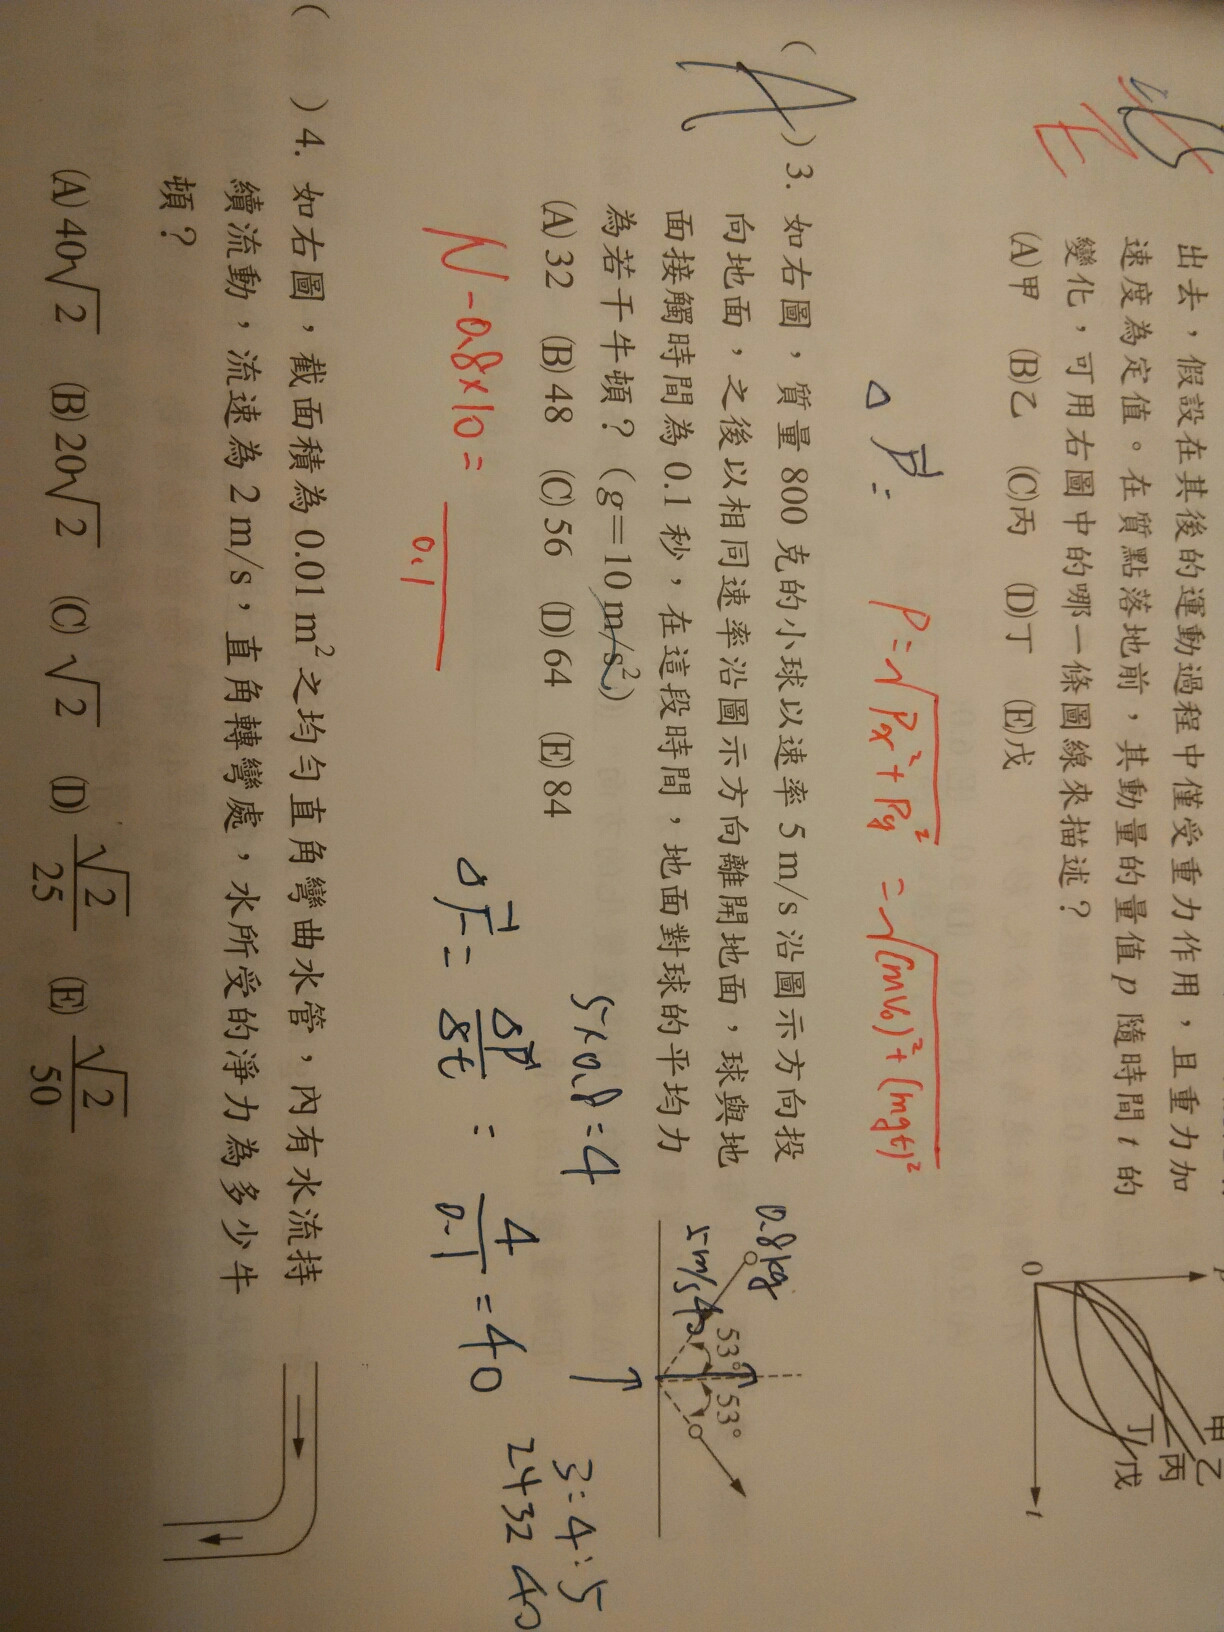 出去，假設在其後的運動過程中僅受重力作用，且重力加
速度為定值。在質點落地前，其動量的量值 p 隨時間 t 的
變化，可用右圖中的哪一條圖線來描述？
(A)甲 (B)乙 (C)丙 (D)丁 (E)戊
E
0
t
甲
乙
丙
丁
戊
Δp⃗=
P=√(Px²+Py²) =√((mv₀)²+(mgt)²)
( A )3. 如右圖，質量 800 克的小球以速率 5 m/s 沿圖示方向投
向地面，之後以相同速率沿圖示方向離開地面，球與地
面接觸時間為 0.1 秒，在這段時間，地面對球的平均力
為若干牛頓？(g=10 m/s²)
(A) 32 (B) 48 (C) 56 (D) 64 (E) 84
0.8kg
5m/s
40
53° 53°
5×0.8=4
N-0.8×10=
0.1
ΔF⃗= Δp⃗/Δt = 4/0.1 =40
3:4:5
24 32 40
( )4. 如右圖，截面積為 0.01 m² 之均勻直角彎曲水管，內有水流持
續流動，流速為 2 m/s，直角轉彎處，水所受的淨力為多少牛
頓？
(A) 40√2 (B) 20√2 (C) √2 (D) √2/25 (E) √2/50